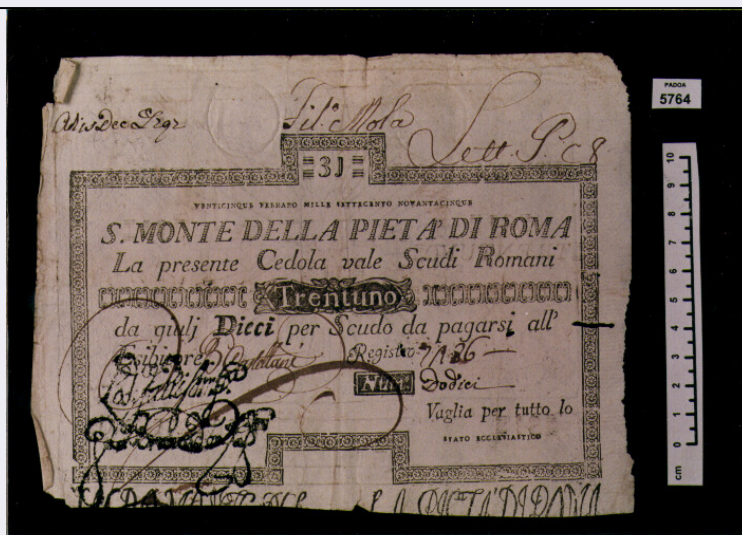 PADOA
5764
Fil.º Mola
Lett. P. c 8
31
VENTICINQUE FEBRARO MILLE SETTECENTO NOVANTACINQUE
S. MONTE DELLA PIETA' DI ROMA
La presente Cedola vale Scudi Romani
Trentuno
da giulj Dieci per Scudo da pagarsi all'
Esibitore Registro
Num. Dodici
Vaglia per tutto lo
STATO ECCLESIASTICO
cm 0 1 2 3 4 5 6 7 8 9 10